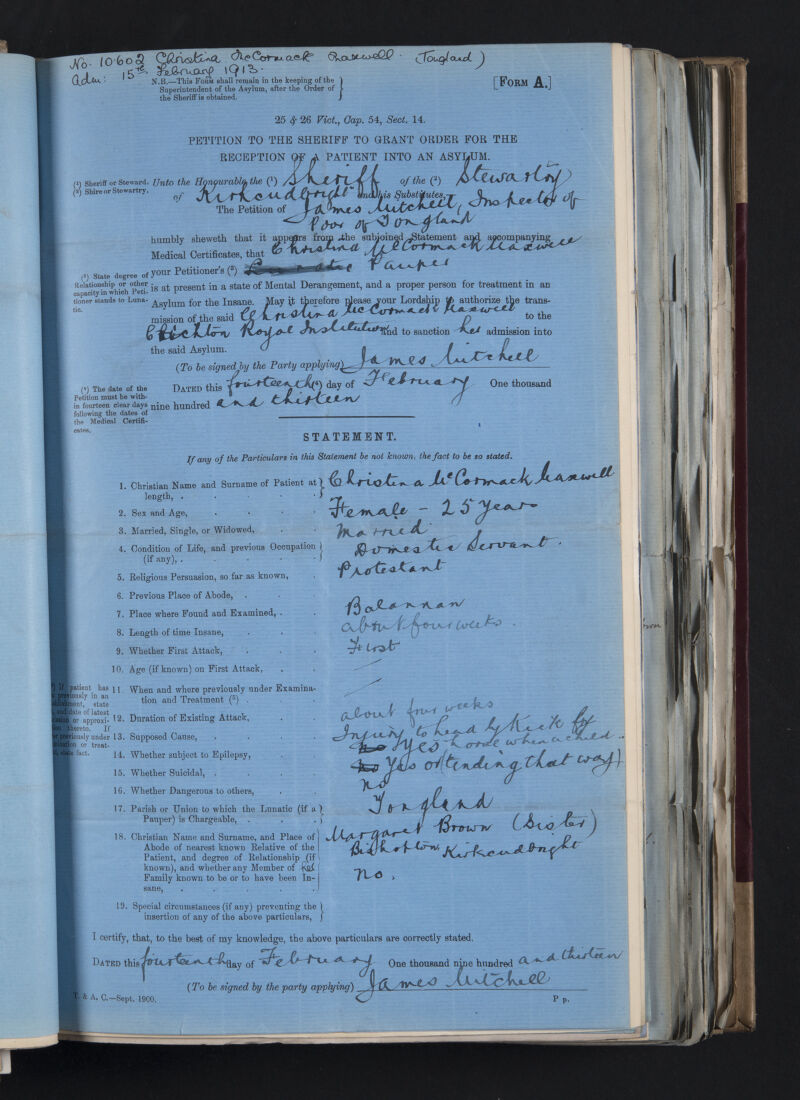 No. 10.602 Christina McCormack Maxwell (Tongland)
Adm: 15th February 1913.
N.B.—This Form shall remain in the keeping of the
Superintendent of the Asylum, after the Order of
the Sheriff is obtained.
[FORM A.]
25 & 26 Vict., Cap. 54, Sect. 14.
PETITION TO THE SHERIFF TO GRANT ORDER FOR THE
RECEPTION OF A PATIENT INTO AN ASYLUM.
(1) Sheriff or Steward.
(2) Shire or Stewartry.
Unto the Honourable the (1) Sheriff of the (2) Stewartry
of Kirkcudbright and his Substitutes
The Petition of James Mitchell, Inspector of
Poor of Tongland
humbly sheweth that it appears from the subjoined Statement and accompanying
Medical Certificates, that Christina McCormack Maxwell
(3) State degree of
Relationship or other
capacity in which Peti-
tioner stands to Luna-
tic.
your Petitioner's (3) Lunatic Pauper
is at present in a state of Mental Derangement, and a proper person for treatment in an
Asylum for the Insane. May it therefore please your Lordship to authorize the trans-
mission of the said Christina McCormack Maxwell to the
Crichton Royal Institution and to sanction her admission into
the said Asylum.
(To be signed by the Party applying) James Mitchell
(4) The date of the
Petition must be with-
in fourteen clear days
following the dates of
the Medical Certifi-
cates.
DATED this fourteenth (4) day of February One thousand
nine hundred and thirteen
STATEMENT.
If any of the Particulars in this Statement be not known, the fact to be so stated.
1. Christian Name and Surname of Patient at
length, . Christina McCormack Maxwell
2. Sex and Age, Female – 25 years
3. Married, Single, or Widowed, Married
4. Condition of Life, and previous Occupation
(if any), . Domestic Servant.
5. Religious Persuasion, so far as known, Protestant
6. Previous Place of Abode, .
7. Place where Found and Examined, . Balannan
8. Length of time Insane, about four weeks.
9. Whether First Attack, First
10. Age (if known) on First Attack,
11. When and where previously under Examina-
tion and Treatment (5) .
12. Duration of Existing Attack, about four weeks
13. Supposed Cause, Injury to head by kick by
horse when a child.
14. Whether subject to Epilepsy, no yes
15. Whether Suicidal, . no Yes or (tending that way)
16. Whether Dangerous to others, no
17. Parish or Union to which the Lunatic (if a
Pauper) is Chargeable, . Tongland
18. Christian Name and Surname, and Place of
Abode of nearest known Relative of the
Patient, and degree of Relationship (if
known), and whether any Member of
Family known to be or to have been In-
sane, .
Margaret Brown (Sister)
Kirkcudbright
no.
19. Special circumstances (if any) preventing the
insertion of any of the above particulars,
I certify, that, to the best of my knowledge, the above particulars are correctly stated.
DATED this fourteenth day of February One thousand nine hundred and thirteen
(To be signed by the party applying) James Mitchell
T. & A. C.—Sept. 1900.
P p.